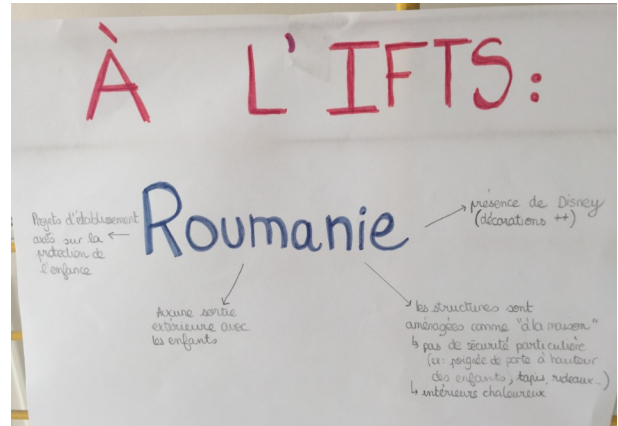 À L'IFTS:
Roumanie
Projets d'établissement
axés sur la
protection de
l'enfance
présence de Disney
(décorations ++)
Aucune sortie
extérieure avec
les enfants
les structures sont
aménagées comme "à la maison"
↳ pas de sécurité particulière
(ex: poignée de porte à hauteur
des enfants, tapis, rideaux...)
↳ intérieurs chaleureux